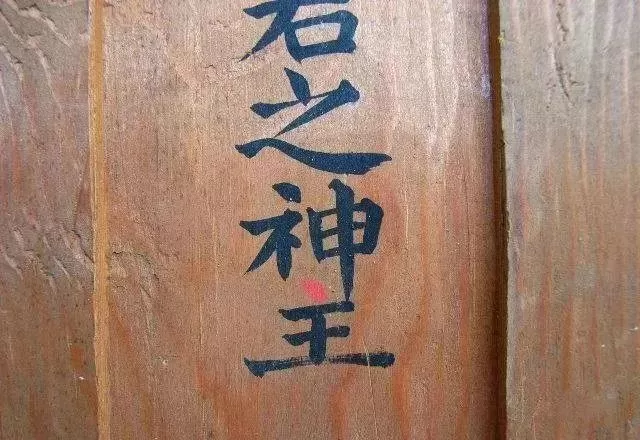 君之神主